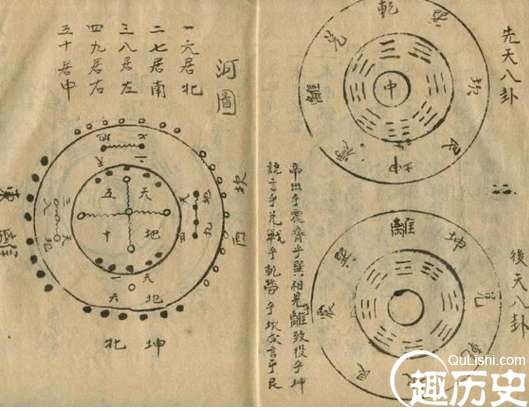 先天八卦
乾
兌
離
震
坤
坎
中
後天八卦
離
坤
兌
震
巽
艮
帝出乎震齊乎巽相見離致役乎坤
說言乎兌戰乎乾勞乎坎成言乎艮
河圖
一六居北
二七居南
三八居左
四九居右
五十居中
五 天
十 地
天
地
六
坎
北 坤
QuLishi.com
趣历史